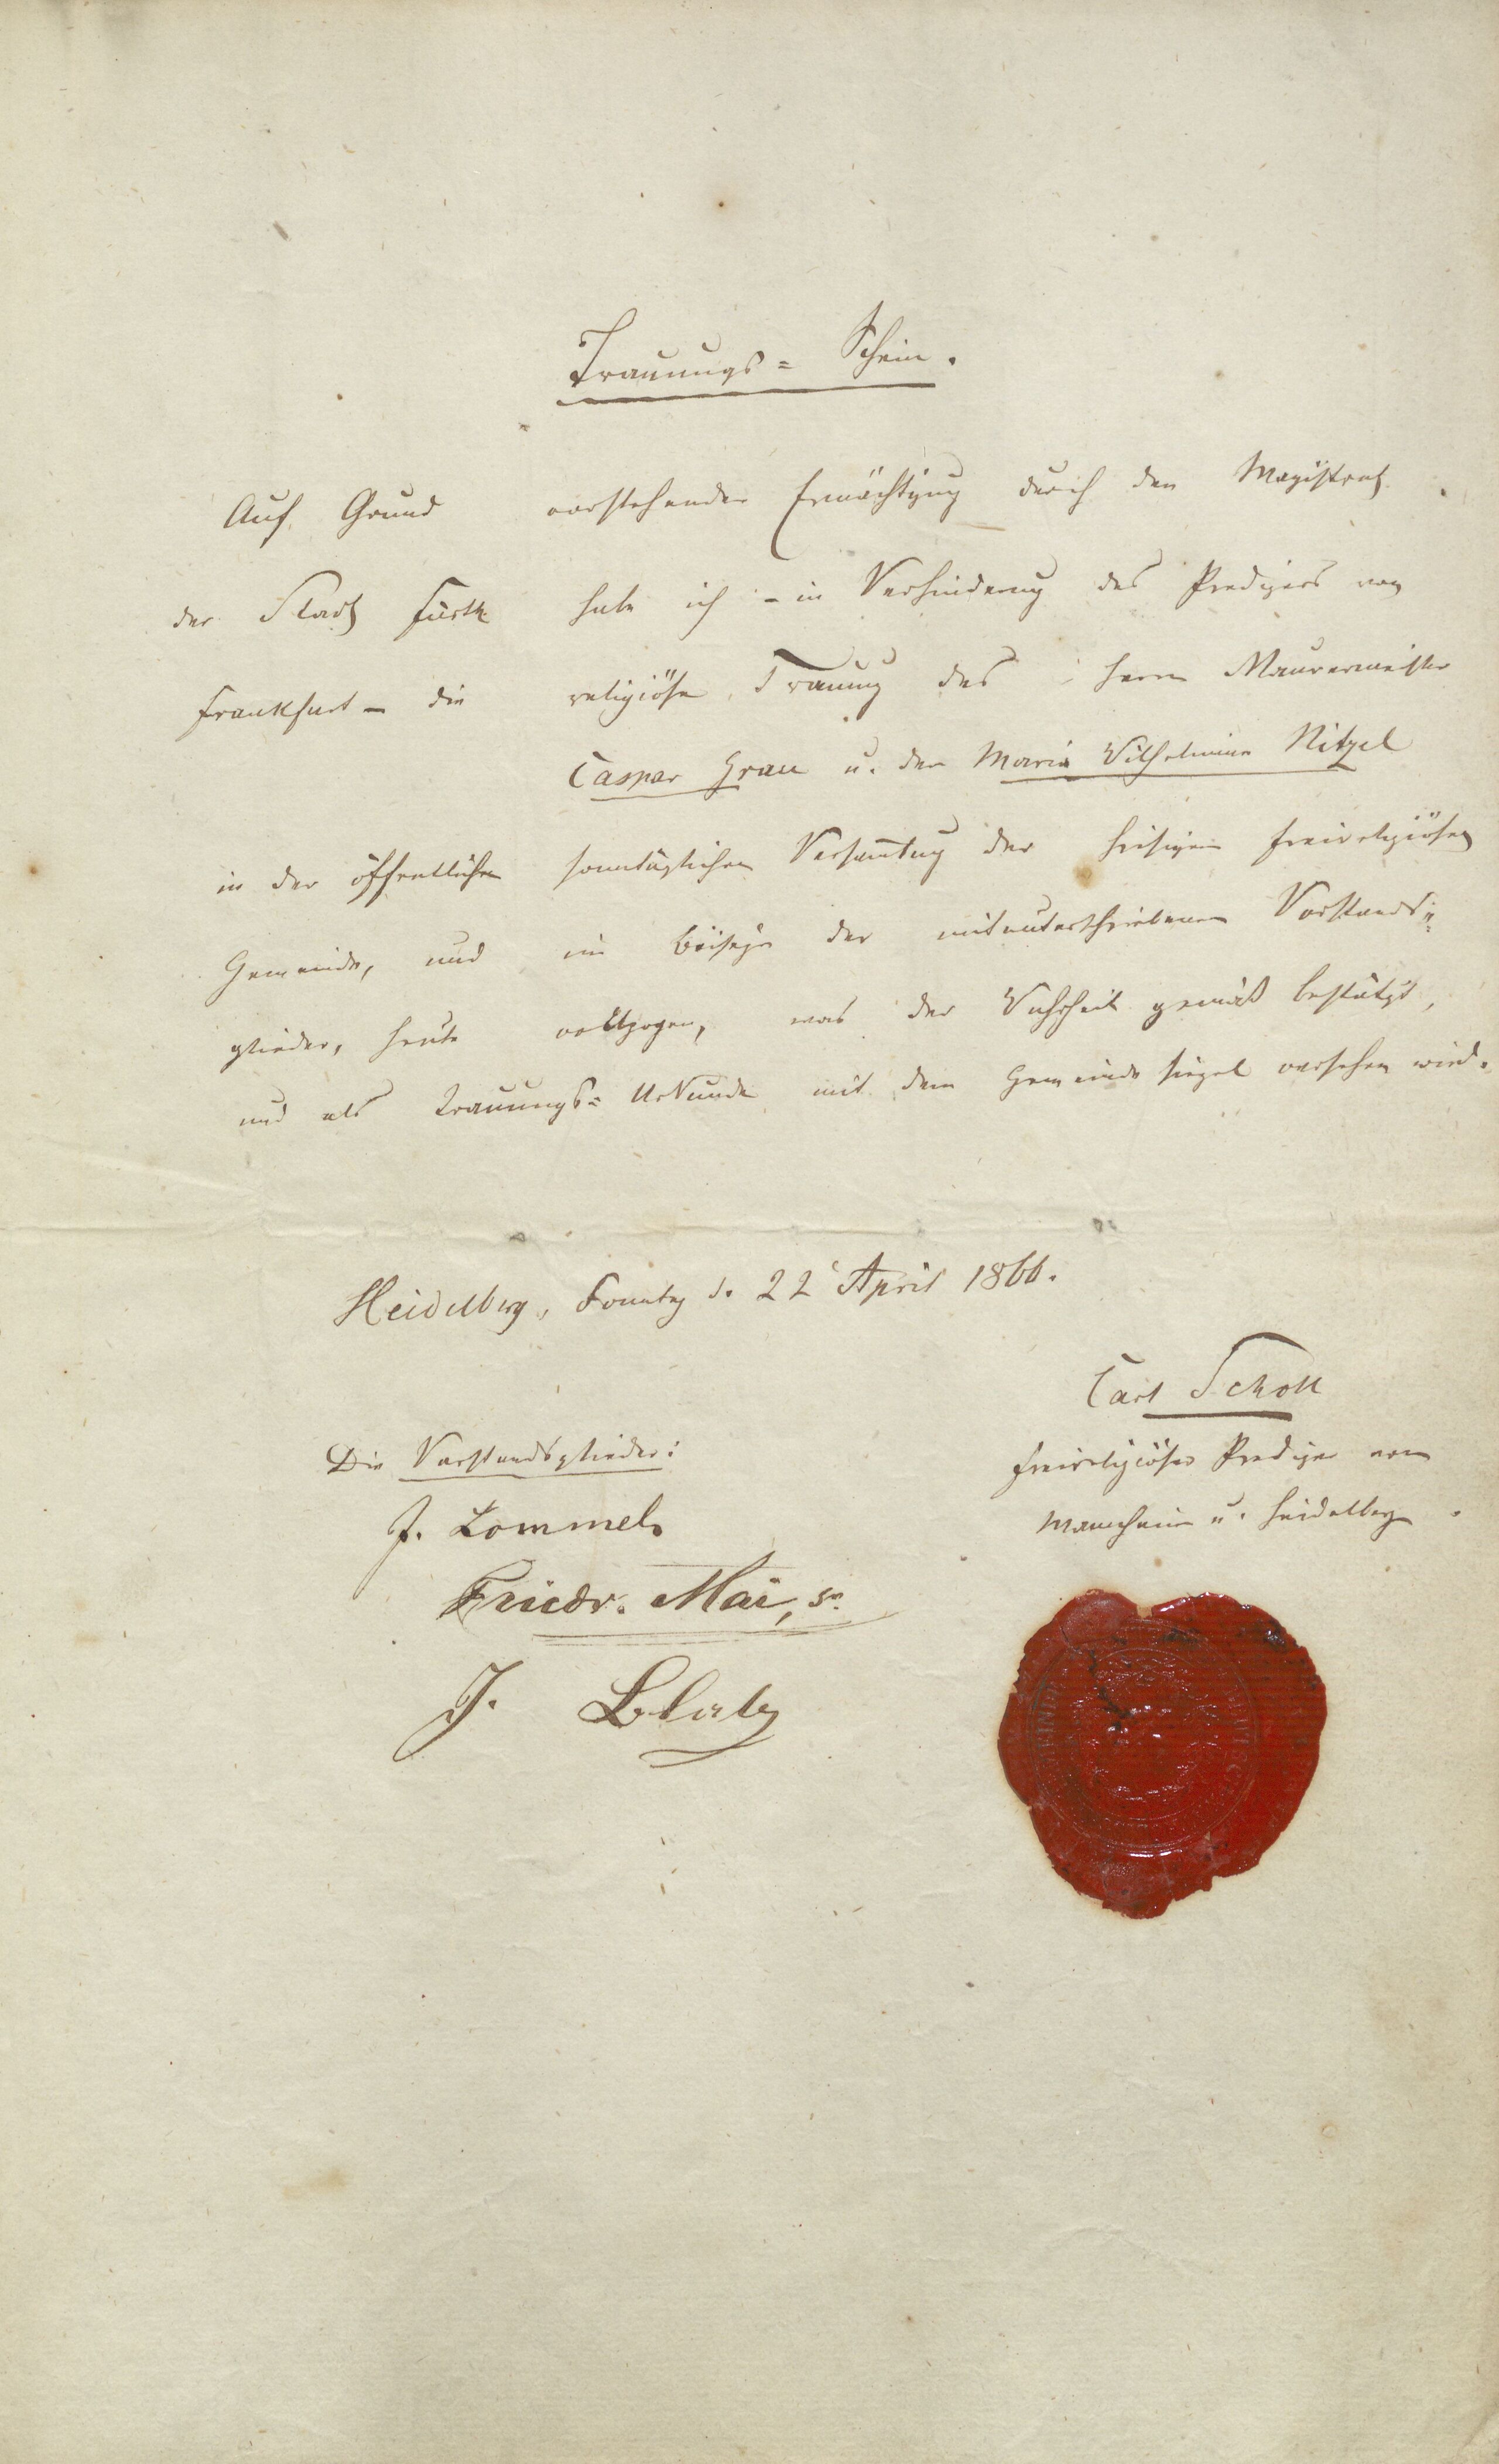 Trauungs= Schein.
Auf Grund vorstehender Ermächtigung durch den Magistrat
der Stadt Fürth habe ich - in Verhinderung des Predigers von
Frankfurt - die religiöse Trauung des Herrn Maurermeister
Caspar Grau u. der Maria Wilhelmine Nitzel
in der öffentlichen sonntäglichen Versam̄lung der hiesigen freireligiösen
Gemeinde, und im Beisein der mitunterschriebenen Vorstands=
glieder, heute vollzogen, was der Wahrheit gemäß bestätigt,
und als Trauungs= Urkunde mit dem Gemeindesiegel versehen wird.
Heidelberg, Sonntag d. 22 April 1866.
Carl Scholl
freireligiöser Prediger von
Mannheim u. Heidelberg.
Die Vorstandsglieder:
J. Lommel
Friedr. Mai, sr.
J. Blatz